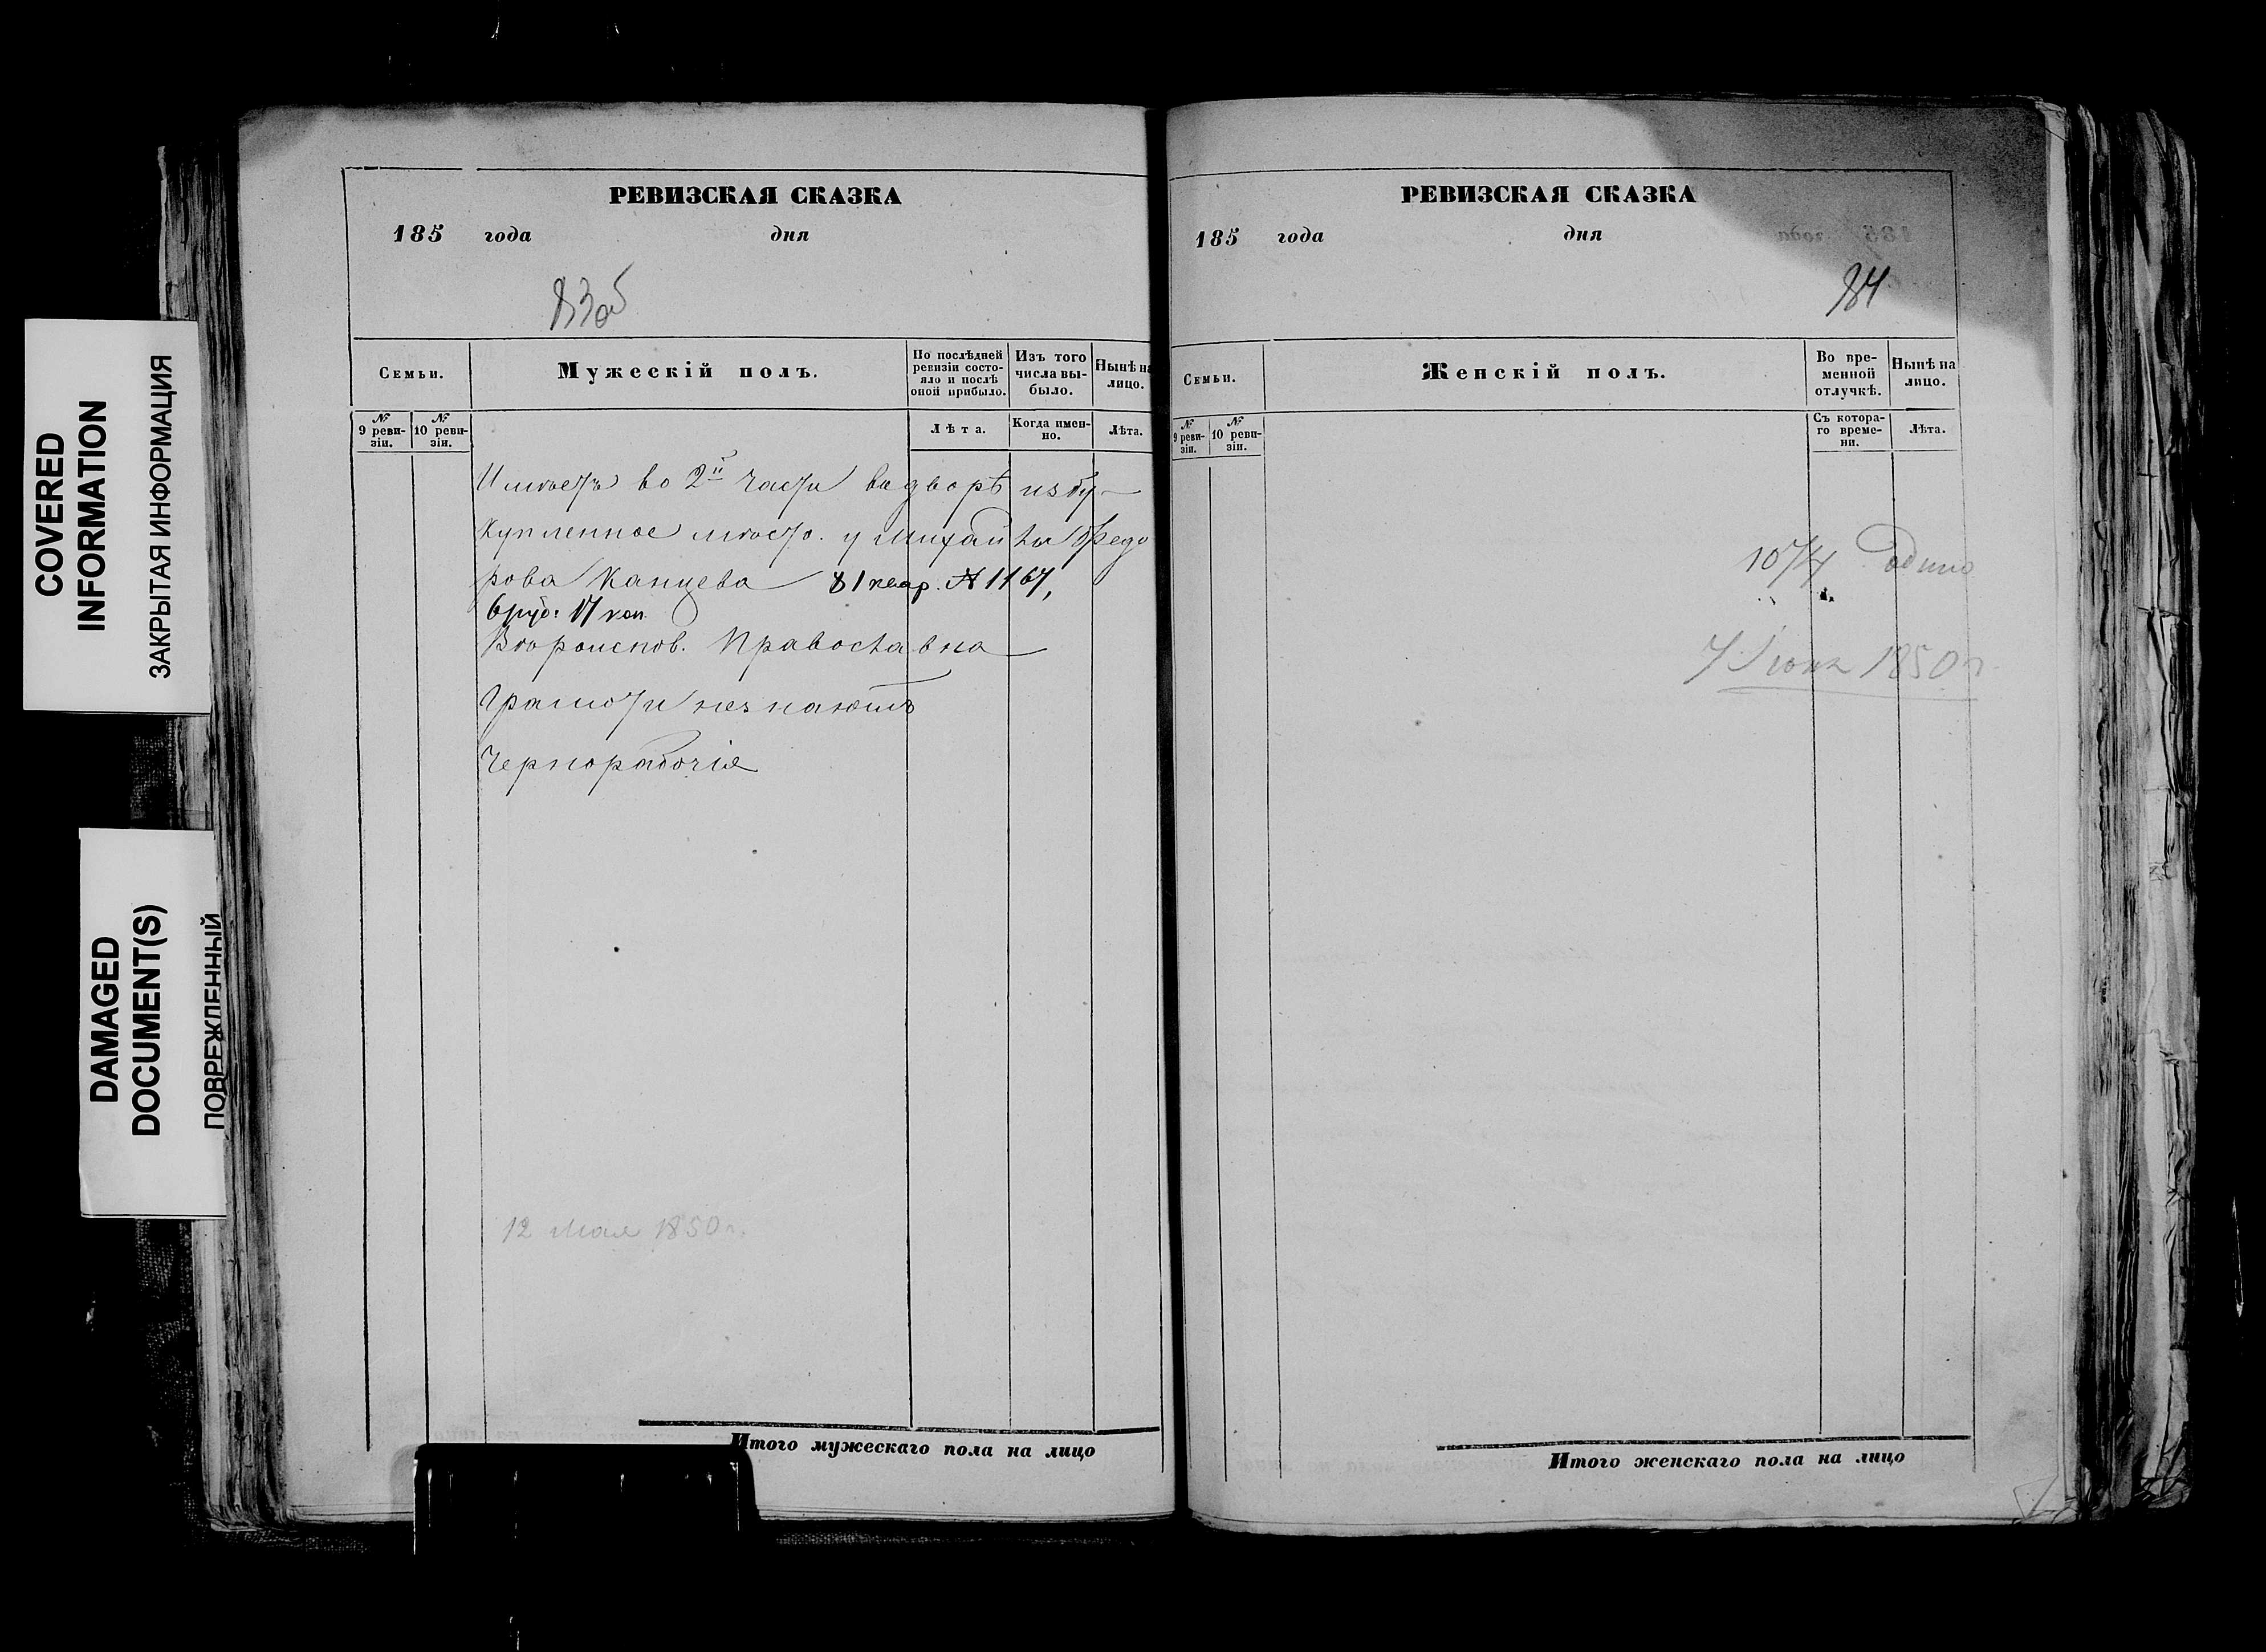 COVERED
INFORMATION
ЗАКРЫТАЯ ИНФОРМАЦИЯ
DAMAGED
DOCUMENT(S)
ПОВРЕЖДЕННЫЙ
РЕВИЗСКАЯ СКАЗКА
185 года дня
83об
Семьи.
Мужескій полъ.
По послѣдней ревизіи состояло и послѣ оной прибыло.
Изъ того числа выбыло.
Нынѣ на лицо.
№ 9 ревизіи.
№ 10 ревизіи.
Лѣта.
Когда именно.
Лѣта.
Имѣетъ во 2й части въ дворѣ избу
купленное мѣсто у Михайлы Федо
рова Канцева 81 квар. № 1167,
6 руб: 17 коп
Вѣроиспов. Православна
Грамоти незнаютъ
Чернорабочіе
12 мая 1850 г.
Итого мужескаго пола на лицо
РЕВИЗСКАЯ СКАЗКА
185 года дня
84
Семьи.
Женскій полъ.
Во временной отлучкѣ.
Нынѣ на лицо.
№ 9 ревизіи.
№ 10 ревизіи.
Съ котораго времени.
Лѣта.
7 Іюня 1850 г.
Итого женскаго пола на лицо